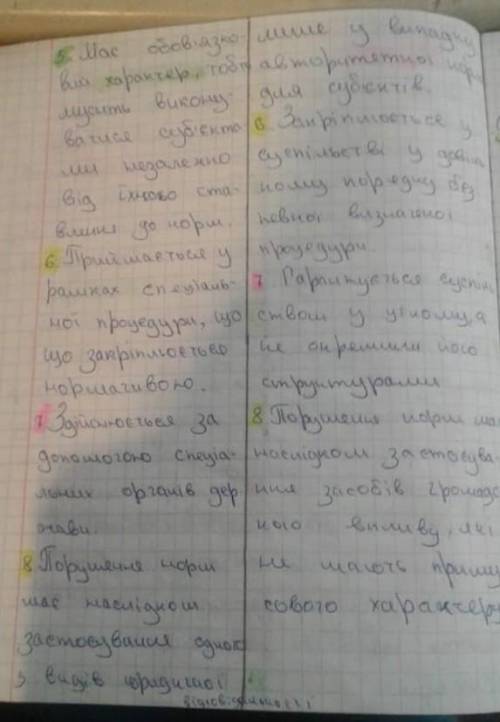 5. Має обов'язко-
вий характер, тобто
мусить викону-
ватися суб'єкта
ми незалежно
від їхнього ста-
влення до норм.
6. Приймається у
рамках спеціаль-
ної процедури, що
що закріплюється
нормативно.
7. Здійснюється за
допомогою спеціа-
льних органів дер
жави.
8. Порушення норм
має наслідком
застосування одного
з видів юридичної
відповідальності
лише у випадку
авторитетної норм
для суб'єктів.
6. Закріплюється у
суспільстві у довіль
ному порядку без
певної визначеної
процедури.
7. Гарантується суспіль
ством у цілому, а
не окремими його
структурами
8. Порушення норм ма
наслідком застосува-
ння засобів громадс
кого впливу, які
не мають приму
сового характеру